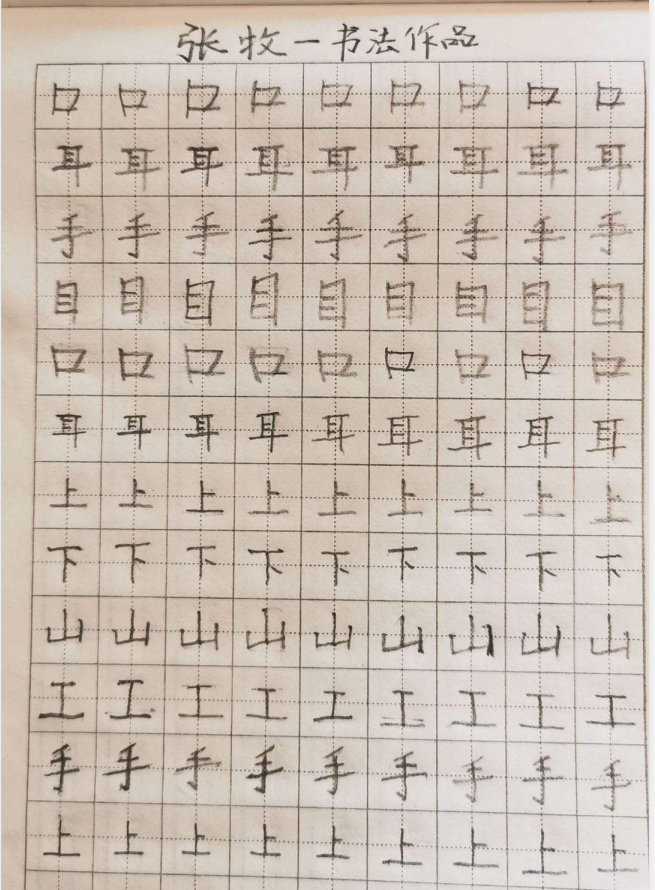 张牧一书法作品
口口口口口口口口口
耳耳耳耳耳耳耳耳耳
手手手手手手手手手
目目目目目目目目目
口口口口口口口口口
耳耳耳耳耳耳耳耳耳
上上上上上上上上上
下下下下下下下下下
山山山山山山山山山
工工工工工工工工工
手手手手手手手手手
上上上上上上上上上